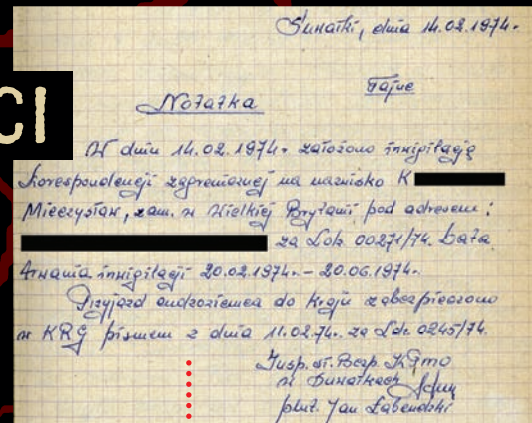 Suwałki, dnia 14.02.1974r.
Tajne
Notatka
CI
W dniu 14.02.1974r założono inwigilację
korespondencji zagranicznej na nazwisko K
Mieczysław, zam. w Wielkiej Brytanii pod adresem:
za Ldz. 00271/74. Data
trwania inwigilacji 20.02.1974r. – 20.06.1974r.
Przyjazd cudzoziemca do kraju zabezpieczono
w KRG pismem z dnia 11.02.74r. za Ldz. 0245/74.
Insp. st. Bezp. KPMO
w Suwałkach
plut. Jan